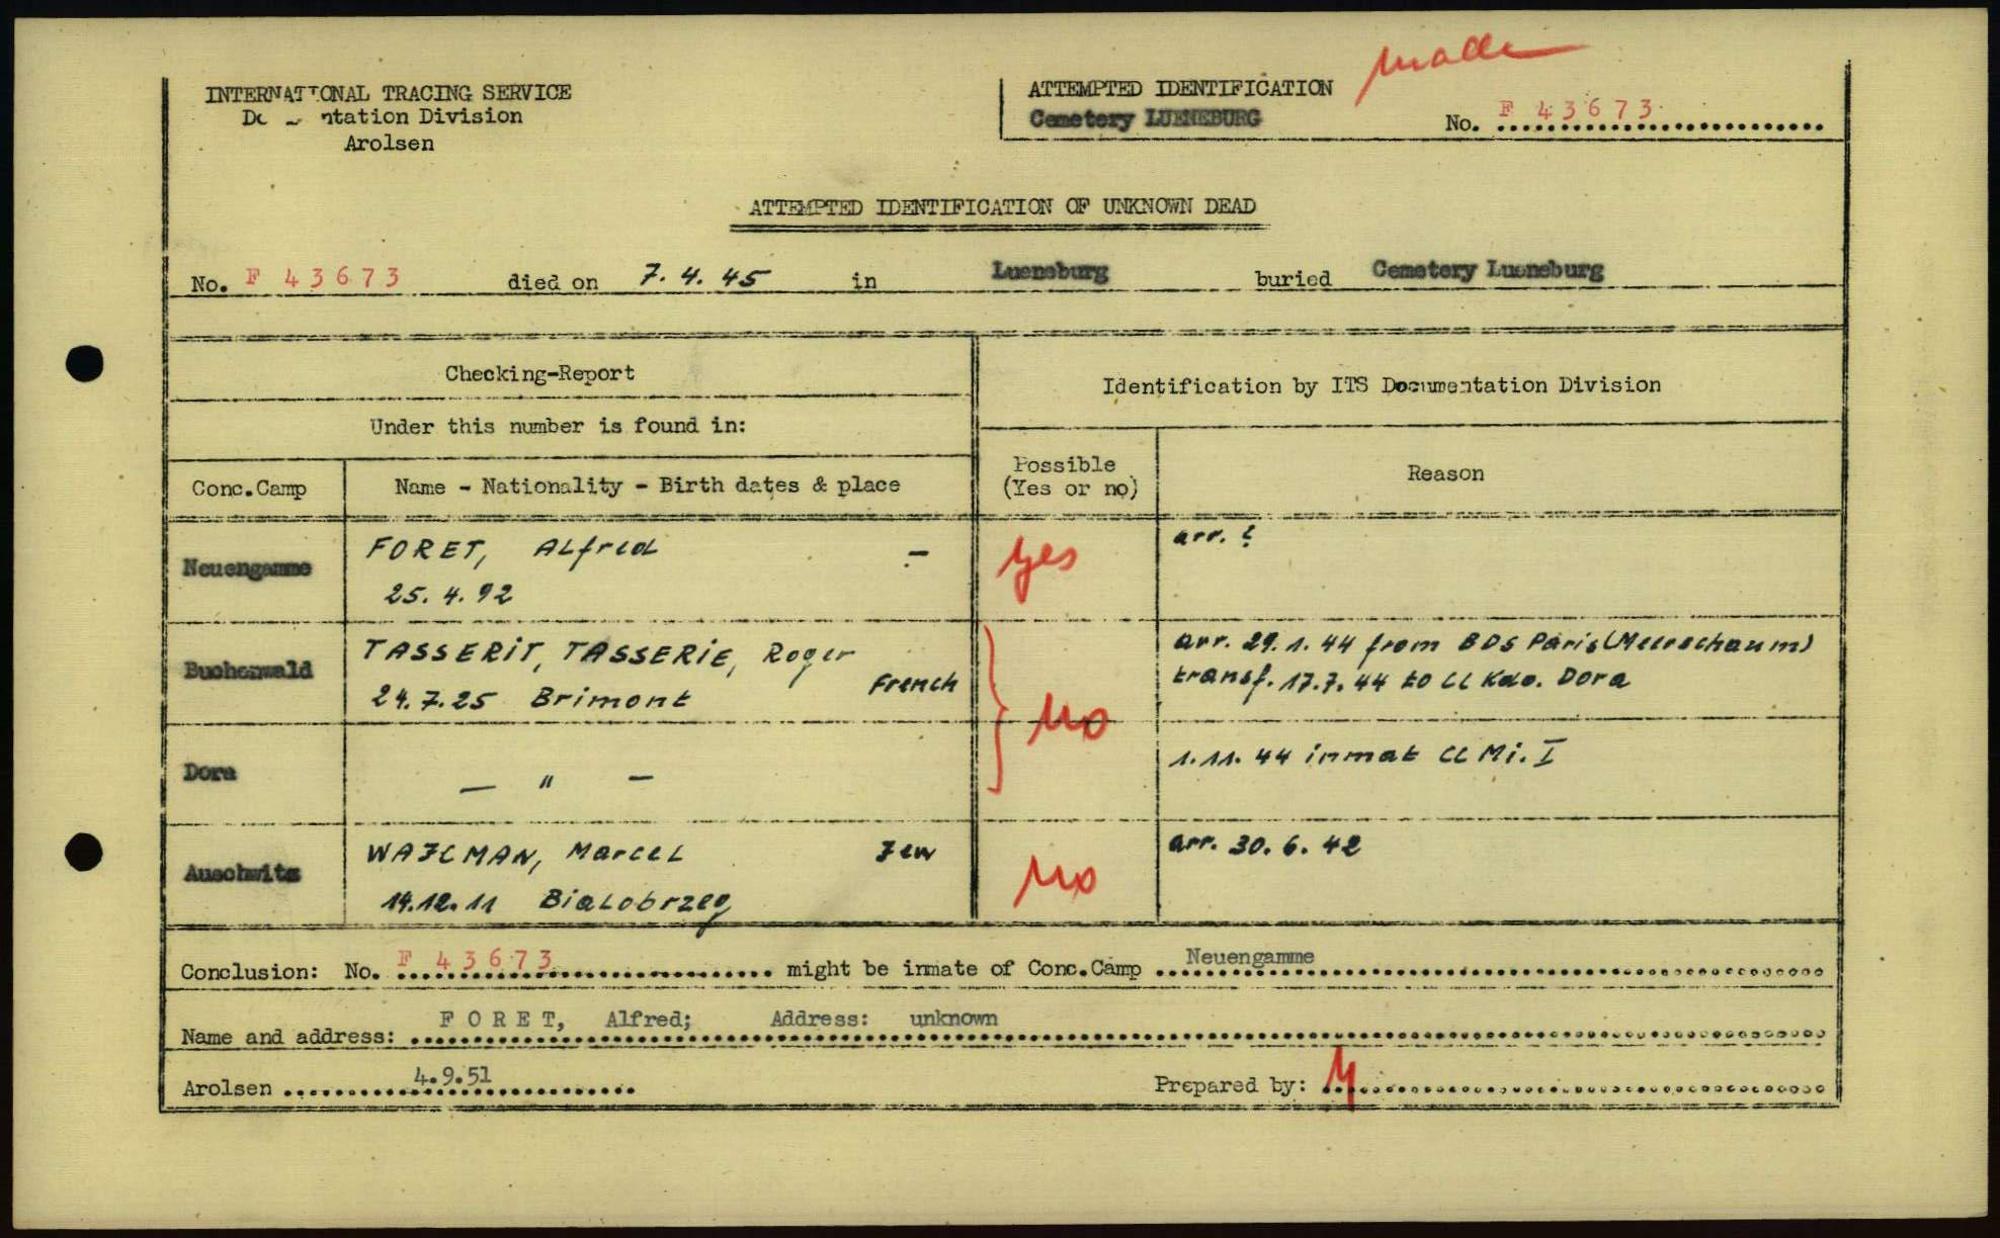 INTERNATIONAL TRACING SERVICE
Documentation Division
Arolsen
ATTEMPTED IDENTIFICATION
Cemetery LUENEBURG
made
No. F 43673
ATTEMPTED IDENTIFICATION OF UNKNOWN DEAD
No. F 43673 died on 7.4.45 in Lueneburg buried Cemetery Lueneburg
Checking-Report
Identification by ITS Documentation Division
Under this number is found in:
Conc.Camp
Name - Nationality - Birth dates & place
Possible
(Yes or no)
Reason
Neuengamme
FORET, Alfred -
25.4.92
yes
arr. ?
Buchenwald
TASSERIT, TASSERIE, Roger
24.7.25 Brimont French
no
arr. 29.1.44 from BDS Paris (Meerschaum)
transf. 17.7.44 to CC Kdo. Dora
Dora
— " —
1.11.44 inmat CC Mi. I
Auschwitz
WAJCMAN, Marcel Jew
14.12.11 Bialobrzeg
no
arr. 30.6.42
Conclusion: No. F 43673 might be inmate of Conc.Camp Neuengamme
Name and address: FORET, Alfred; Address: unknown
Arolsen 4.9.51
Prepared by: